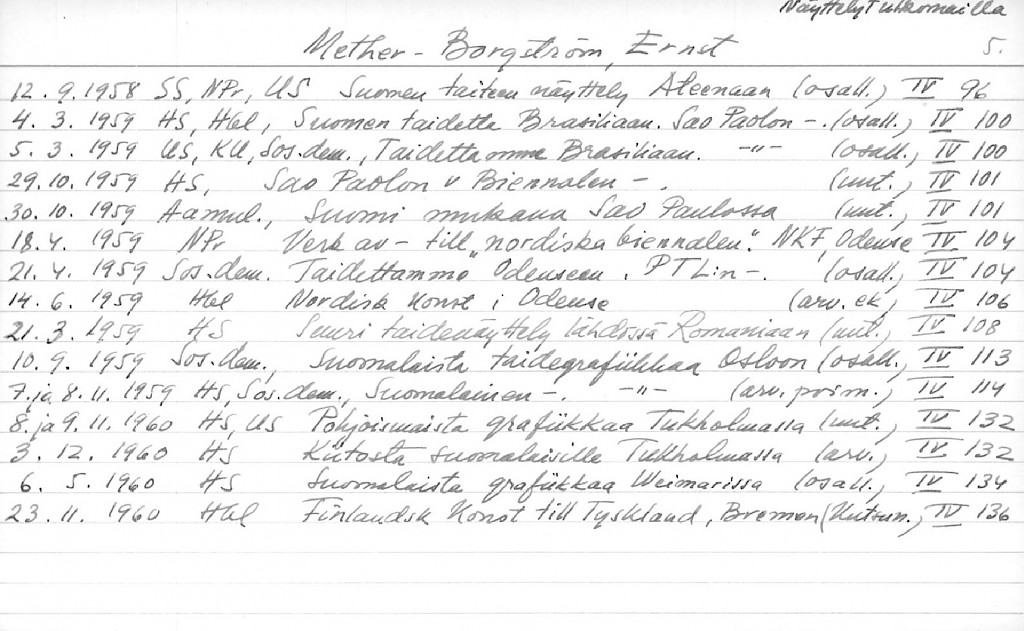 Näyttelyt ulkomailla
Mether-Borgström, Ernst 5.
12.9.1958 SS, NPr, US Suomen taiteen näyttely Ateenaan (osall.) IV 96
4.3.1959 HS, Hbl, Suomen taidetta Brasiliaan. Sao Paolon -. (osall.) IV 100
5.3.1959 US, KU, Sos.dem., Taidettamme Brasiliaan. -"- (osall.) IV 100
29.10.1959 HS, Sao Paolon V Biennalen -. (uut.) IV 101
30.10.1959 Aamul., Suomi mukana Sao Paulossa (uut.) IV 101
18.4.1959 NPr Verk av - till "nordiska biennalen". NKF, Odense IV 104
21.4.1959 Sos.dem. Taidettamme Odenseen. PTLin -. (osall.) IV 104
14.6.1959 Hbl Nordisk konst i Odense (arv. ek) IV 106
21.3.1959 HS Suuri taidenäyttely lähdössä Romaniaan (uut.) IV 108
10.9.1959 Sos.dem., Suomalaista taidegrafiikkaa Osloon (osall.) IV 113
7.ja 8.11.1959 HS, Sos.dem., Suomalainen -. -"- (arv. poim.) IV 114
8.ja 9.11.1960 HS, US Pohjoismaista grafiikkaa Tukholmassa (uut.) IV 132
3.12.1960 HS Kiitosta suomalaisille Tukholmassa (arv.) IV 132
6.5.1960 HS Suomalaista grafiikkaa Weimarissa (osall.) IV 134
23.11.1960 Hbl Finlandsk konst till Tyskland, Bremen (Kutsun.) IV 136